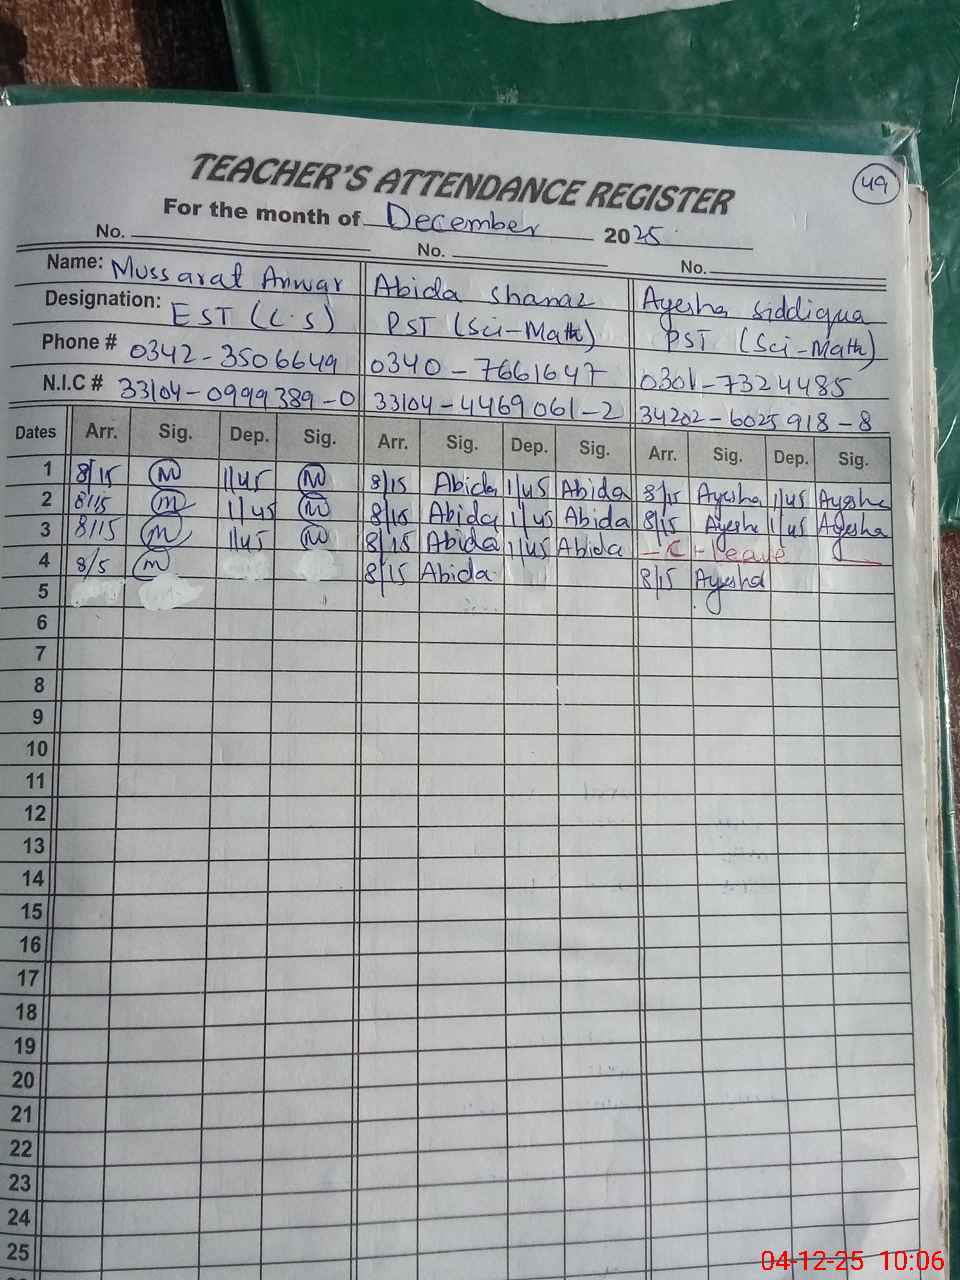 49
TEACHER'S ATTENDANCE REGISTER
For the month of December 2025
No. No. No.
Name: Mussarat Anwar Abida Shanaz Ayesha Siddiqua
Designation: EST (C.S) PST (Sci-Math) PST (Sci-Math)
Phone # 0342-3506649 0340-7661647 0301-7324485
N.I.C # 33104-0999389-0 33104-4469061-2 34202-6025918-8
Dates Arr. Sig. Dep. Sig. Arr. Sig. Dep. Sig. Arr. Sig. Dep. Sig.
1 8/15 M 1/45 M 8/15 Abida 1/45 Abida 8/15 Ayesha 1/45 Ayesha
2 8/15 M 1/45 M 8/15 Abida 1/45 Abida 8/15 Ayesha 1/45 Ayesha
3 8/15 M 1/45 M 8/15 Abida 1/45 Abida - C - Leave
4 8/5 M 8/15 Abida 8/15 Ayesha
5
6
7
8
9
10
11
12
13
14
15
16
17
18
19
20
21
22
23
24
25
04-12-25 10:06